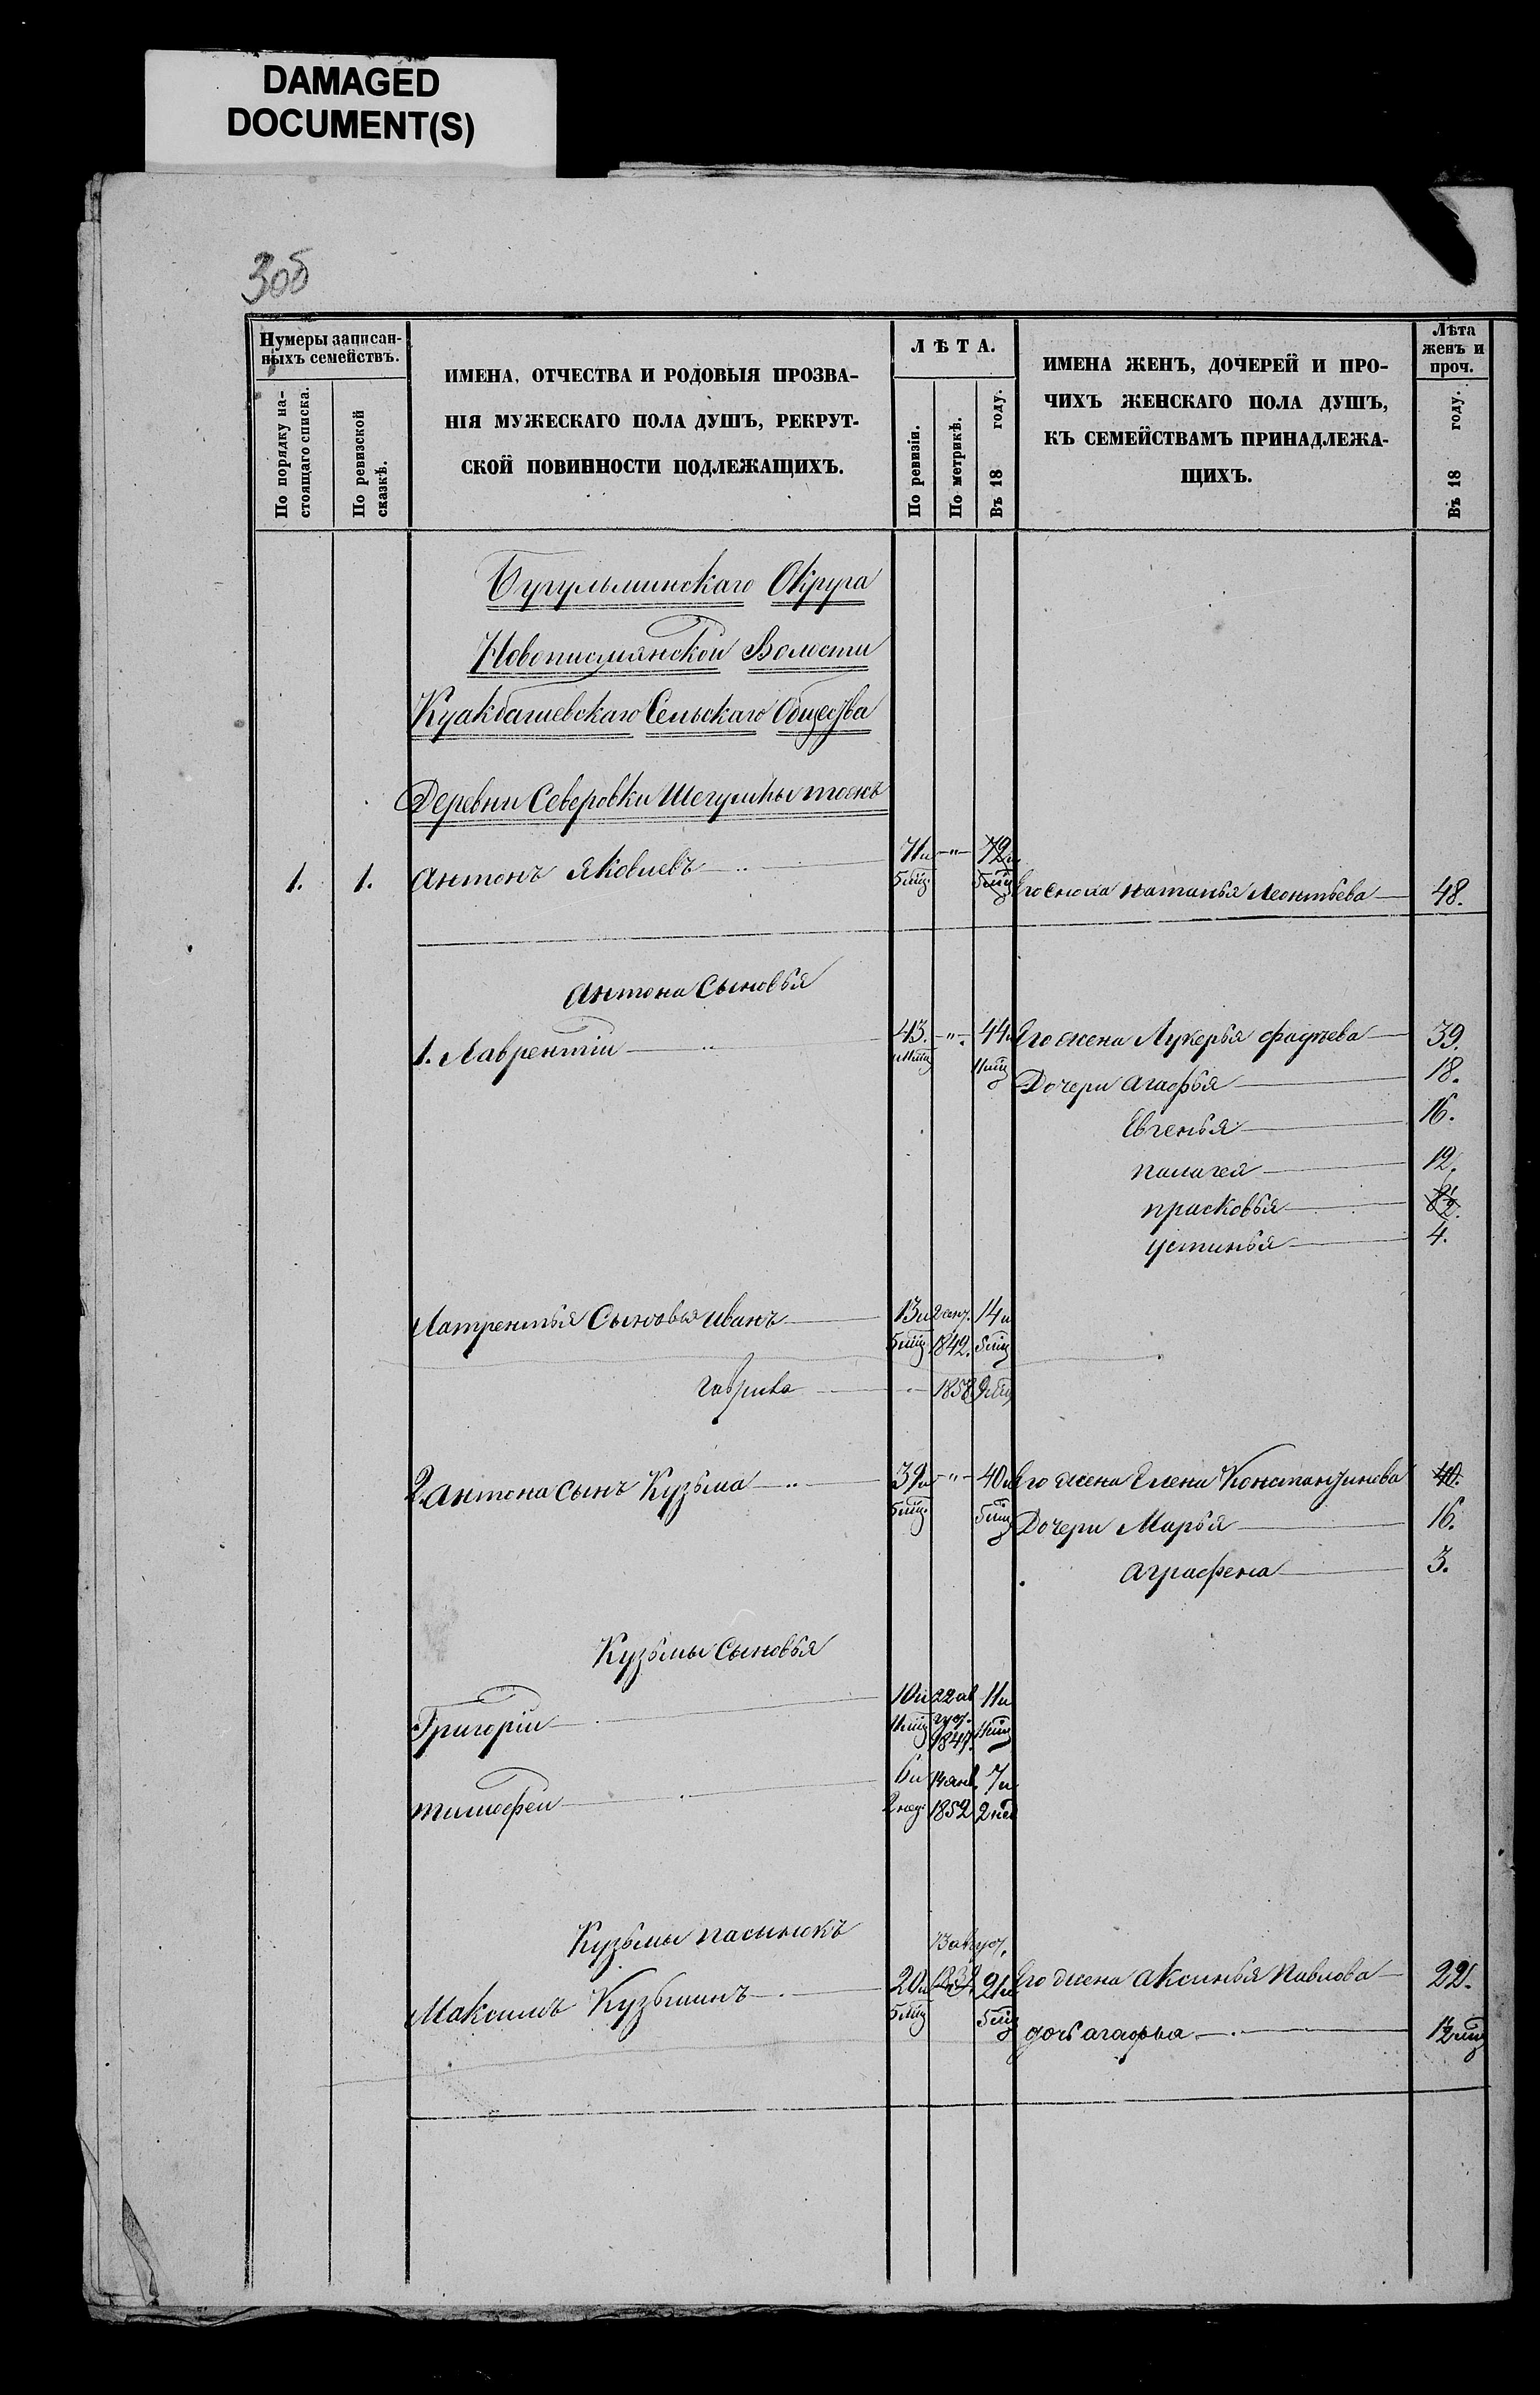 DAMAGED
DOCUMENT(S)
30б
Нумеры записан-
ныхъ семействъ.
По порядку на-
стоящаго списка.
По ревизской
сказкѣ.
ИМЕНА, ОТЧЕСТВА И РОДОВЫЯ ПРОЗВА-
НІЯ МУЖЕСКАГО ПОЛА ДУШЪ, РЕКРУТ-
СКОЙ ПОВИННОСТИ ПОДЛЕЖАЩИХЪ.
ЛѢТА.
По ревизіи.
По метрикѣ.
Въ 18 году.
ИМЕНА ЖЕНЪ, ДОЧЕРЕЙ И ПРО-
ЧИХЪ ЖЕНСКАГО ПОЛА ДУШЪ,
КЪ СЕМЕЙСТВАМЪ ПРИНАДЛЕЖА-
ЩИХЪ.
Лѣта
женъ и
проч.
Въ 18 году.
Бугульминскаго Округа
Новописмянской Волости
Куакбашевскаго Сельскаго Общества
Деревни Северовки тожъ
1. 1. Антонъ Яковлевъ 71 " 72 Его Наталья Леонтьева 48.
5 мѣц. 5 мѣц
Антона Сыновья
1. Лаврентiи 43. " 44 Его жена Лукерья Фадѣева 39.
11 мѣц 11 мѣц Дочери Агафья 18.
Евгенья 16.
Палагея 12.
Прасковья
Устинья 4.
Лаврентья Сыновья Иванъ 13 14
5 мѣц 1842. 5 мѣц
Гаврила " 1858
2. Антона Сынъ Кузьма 39 " 40 Его жена Елена Константинова 40.
5 мѣц. 5 мѣц Дочери Марья 16.
Аграфена 3.
Кузьмы Сыновья
Григорiи 10 22 ав 11
11 мѣц гус. 1847. 11 мѣц
Тимофеи 6 14 янв. 7
2 нед. 1852 2 нед
Кузьмы пасынокъ
13 авгус.
Максимъ Кузьминъ 20 21 Его жена Аксинья Павлова 22.
5 мѣц 5 мѣц дочь Агафья